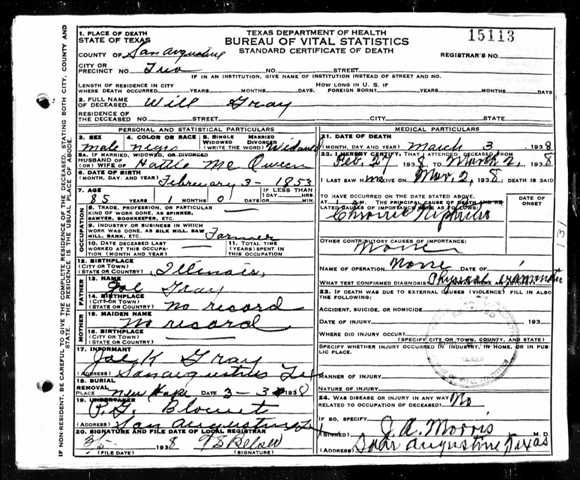 TEXAS DEPARTMENT OF HEALTH
BUREAU OF VITAL STATISTICS
STANDARD CERTIFICATE OF DEATH
15113
1. PLACE OF DEATH
STATE OF TEXAS
COUNTY OF San Augustine
REGISTRAR'S NO.
CITY OR
PRECINCT NO. Two
IF IN AN INSTITUTION, GIVE NAME OF INSTITUTION INSTEAD OF STREET AND NO.
LENGTH OF RESIDENCE IN CITY
WHERE DEATH OCCURRED YEARS MONTHS DAYS
HOW LONG IN U. S. IF
FOREIGN BORN? YEARS MONTHS DAYS
2. FULL NAME OF
DECEASED Will Gray
RESIDENCE OF
THE DECEASED STREET AND NO. CITY COUNTY STATE
PERSONAL AND STATISTICAL PARTICULARS
3. SEX 4. COLOR OR RACE 5. SINGLE MARRIED
WIDOWED DIVORCED
male negro (WRITE THE WORD) Widowed
5A. IF MARRIED, WIDOWED, OR DIVORCED
HUSBAND OF
(OR) WIFE OF Hattie McQueen
6. DATE OF BIRTH
(MONTH, DAY, AND YEAR) February 3- 1853
7. AGE YEARS MONTHS DAYS IF LESS THAN 1 DAY
85 1 0 HOURS MIN
8. TRADE, PROFESSION, OR PARTICULAR
KIND OF WORK DONE, AS SPINNER,
SAWYER, BOOKKEEPER, ETC.
9. INDUSTRY OR BUSINESS IN WHICH
WORK WAS DONE, AS SILK MILL, SAW
MILL, BANK, ETC. Farmer
10. DATE DECEASED LAST
WORKED AT THIS OCCUPA-
TION (MONTH AND YEAR)
11. TOTAL TIME (YEARS)
SPENT IN THIS
OCCUPATION
12. BIRTHPLACE
(CITY OR TOWN)
(STATE OR COUNTRY) Illinois
FATHER
13. NAME
Joe Gray
14. BIRTHPLACE
(CITY OR TOWN)
(STATE OR COUNTRY) no record
MOTHER
15. MAIDEN NAME
No record
16. BIRTHPLACE
(CITY OR TOWN)
(STATE OR COUNTRY)
17. INFORMANT
Gray
(ADDRESS) San Augustine Tex
18. BURIAL
REMOVAL
PLACE New Hope DATE 3-3 1938
19. UNDERTAKER
Blount
(ADDRESS) San Augustine Tex
20. SIGNATURE AND FILE DATE OF LOCAL REGISTRAR
3/5- 1938
(FILE DATE) (SIGNATURE)
MEDICAL PARTICULARS
21. DATE OF DEATH
(MONTH, DAY AND YEAR) March 3 1938
22. I HEREBY CERTIFY, THAT I ATTENDED DECEASED FROM
1938 TO March 2, 1938
I LAST SAW H im ON Mar. 2, 1938. DEATH IS SAID
TO HAVE OCCURRED ON THE DATE STATED ABOVE,
AT M. THE PRINCIPAL CAUSE OF DEATH AND RE-
LATED CAUSES OF IMPORTANCE WERE AS FOLLOWS:
Chronic Nephritis
DATE OF
ONSET
OTHER CONTRIBUTORY CAUSES OF IMPORTANCE:
None
NAME OF OPERATION None DATE OF
WHAT TEST CONFIRMED DIAGNOSIS Physical examination
23. IF DEATH WAS DUE TO EXTERNAL CAUSES (VIOLENCE) FILL IN ALSO
THE FOLLOWING.
ACCIDENT, SUICIDE, OR HOMICIDE
DATE OF INJURY 193
WHERE DID INJURY OCCUR?
(SPECIFY CITY OR TOWN, COUNTY, AND STATE)
SPECIFY WHETHER INJURY OCCURRED IN INDUSTRY, HOME, OR IN PUB-
LIC PLACE.
MANNER OF INJURY
NATURE OF INJURY
24. WAS DISEASE OR INJURY IN ANY WAY
RELATED TO OCCUPATION OF DECEASED? No
IF SO, SPECIFY
(SIGNED) J. A. Morris M. D.
(ADDRESS) San Augustine Texas